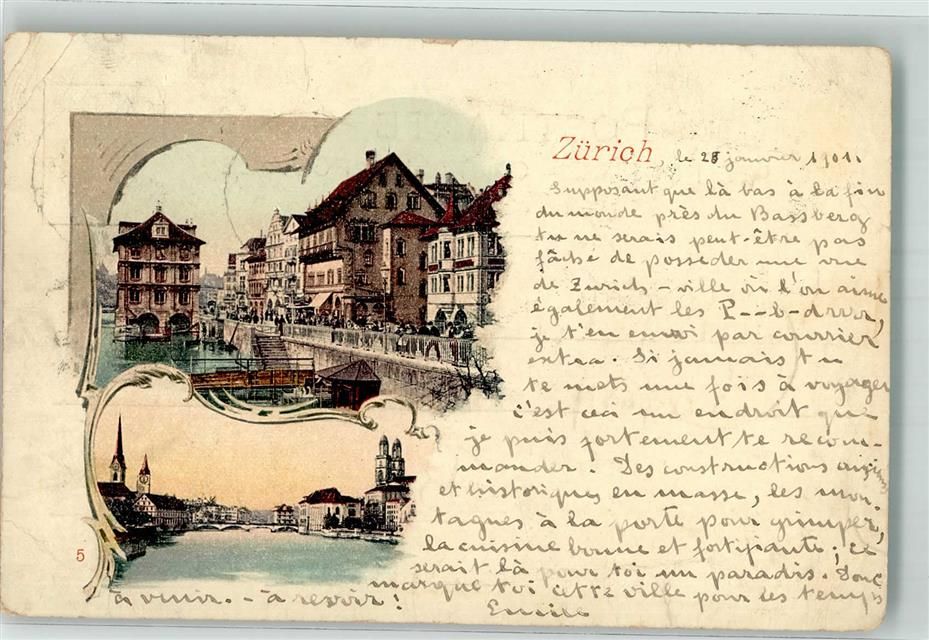 Zürich, le 28 janvier 1901.
Supposant que là bas à la fin
du monde près du Bassberg
tu ne serais peut-être pas
fâché de posséder une vue
de Zurich - ville où l'on aime
également les P--b-
je t'en envoi par courrier
extra. Si jamais tu
te mets une fois à voyager
c'est ceci un endroit que
je puis fortement te recom-
mander. Des constructions
et historiques en masse, les mon-
tagnes à la porte pour grimper,
la cuisine bonne et fortifiante; ce
serait là pour toi un paradis. Donc
marque toi cette ville pour les temps
à venir. - à revoir!
Emile
5